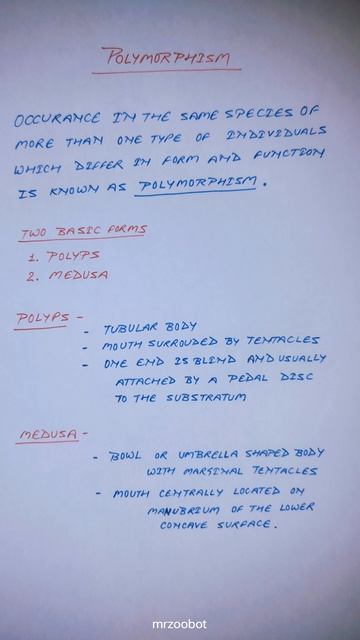 POLYMORPHISM
OCCURANCE IN THE SAME SPECIES OF
MORE THAN ONE TYPE OF INDIVIDUALS
WHICH DIFFER IN FORM AND FUNCTION
IS KNOWN AS POLYMORPHISM.
TWO BASIC FORMS
1. POLYPS
2. MEDUSA
POLYPS -
- TUBULAR BODY
- MOUTH SURROUDED BY TENTACLES
- ONE END IS BLIND AND USUALLY
ATTACHED BY A PEDAL DISC
TO THE SUBSTRATUM
MEDUSA -
- BOWL OR UMBRELLA SHAPED BODY
WITH MARGINAL TENTACLES
- MOUTH CENTRALLY LOCATED ON
MANUBRIUM OF THE LOWER
CONCAVE SURFACE.
mrzoobot